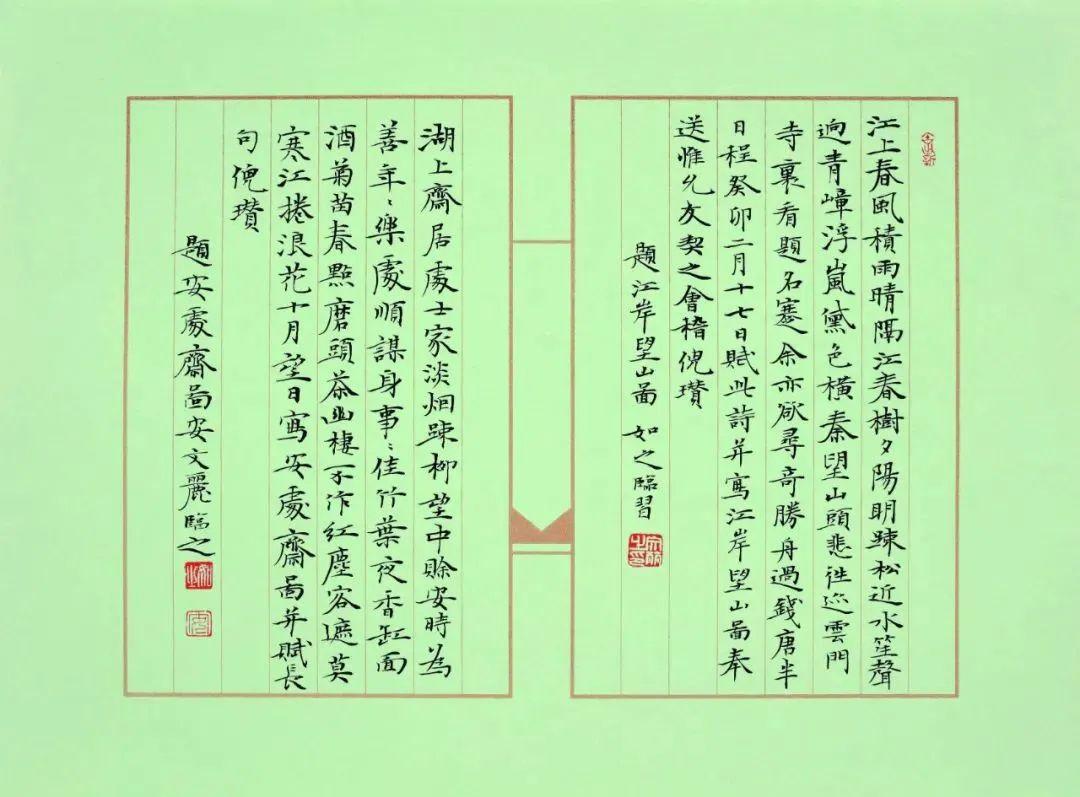 江上春風積雨晴隔江春樹夕陽明踈松近水笙聲
逈青嶂浮嵐黛色橫秦望山頭悲往迹雲門
寺裏看題名蹇余亦欲尋竒勝舟過錢唐半
日程癸卯二月十七日賦此詩并寫江岸望山圖奉
送惟允友契之會稽倪瓚
題江岸望山圖 如之臨習
湖上齋居處士家淡烟踈柳望中賒安時為
善年〻樂處順謀身事〻佳竹葉夜香缸面
酒菊苗春點磨頭茶幽棲不作紅塵客遮莫
寒江捲浪花十月望日寫安處齋圖并賦長
句倪瓚
題安處齋圖安文麗臨之